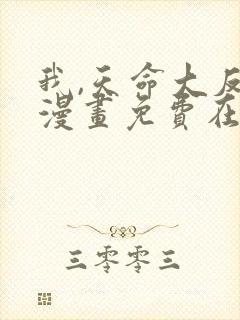 我,天命大反
漫畫免費在
三零零三